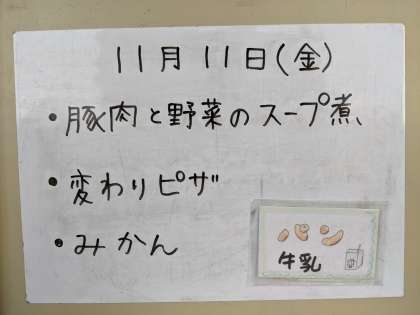 11月11日(金)
・豚肉と野菜のスープ煮、
・変わりピザ
・みかん
パン
牛乳